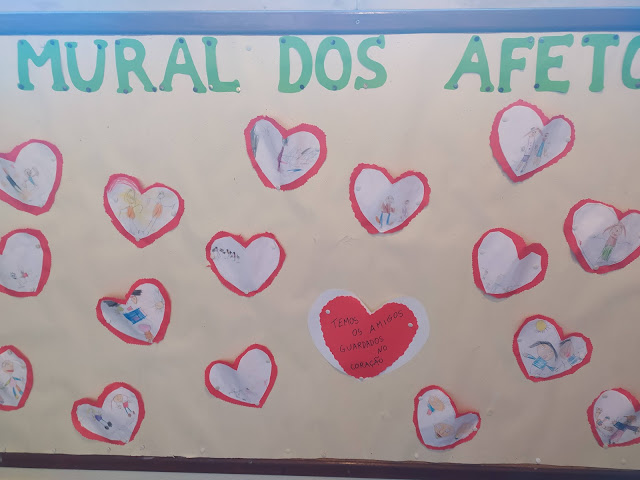 MURAL DOS AFETO
TEMOS
OS AMIGOS
GUARDADOS
NO
CORAÇÃO